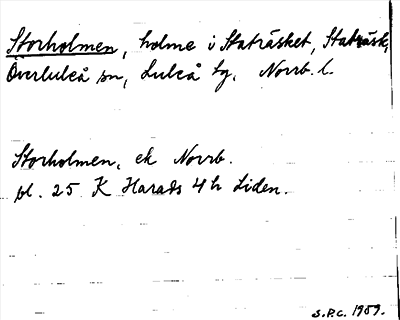 Storholmen, holme i Staträsket, Staträsk,
Överluleå sn, Luleå tg, Norrb. l.
Storholmen, ek Norrb.
bl. 25 K Harads 4 h Liden.
S.P.C. 1959.